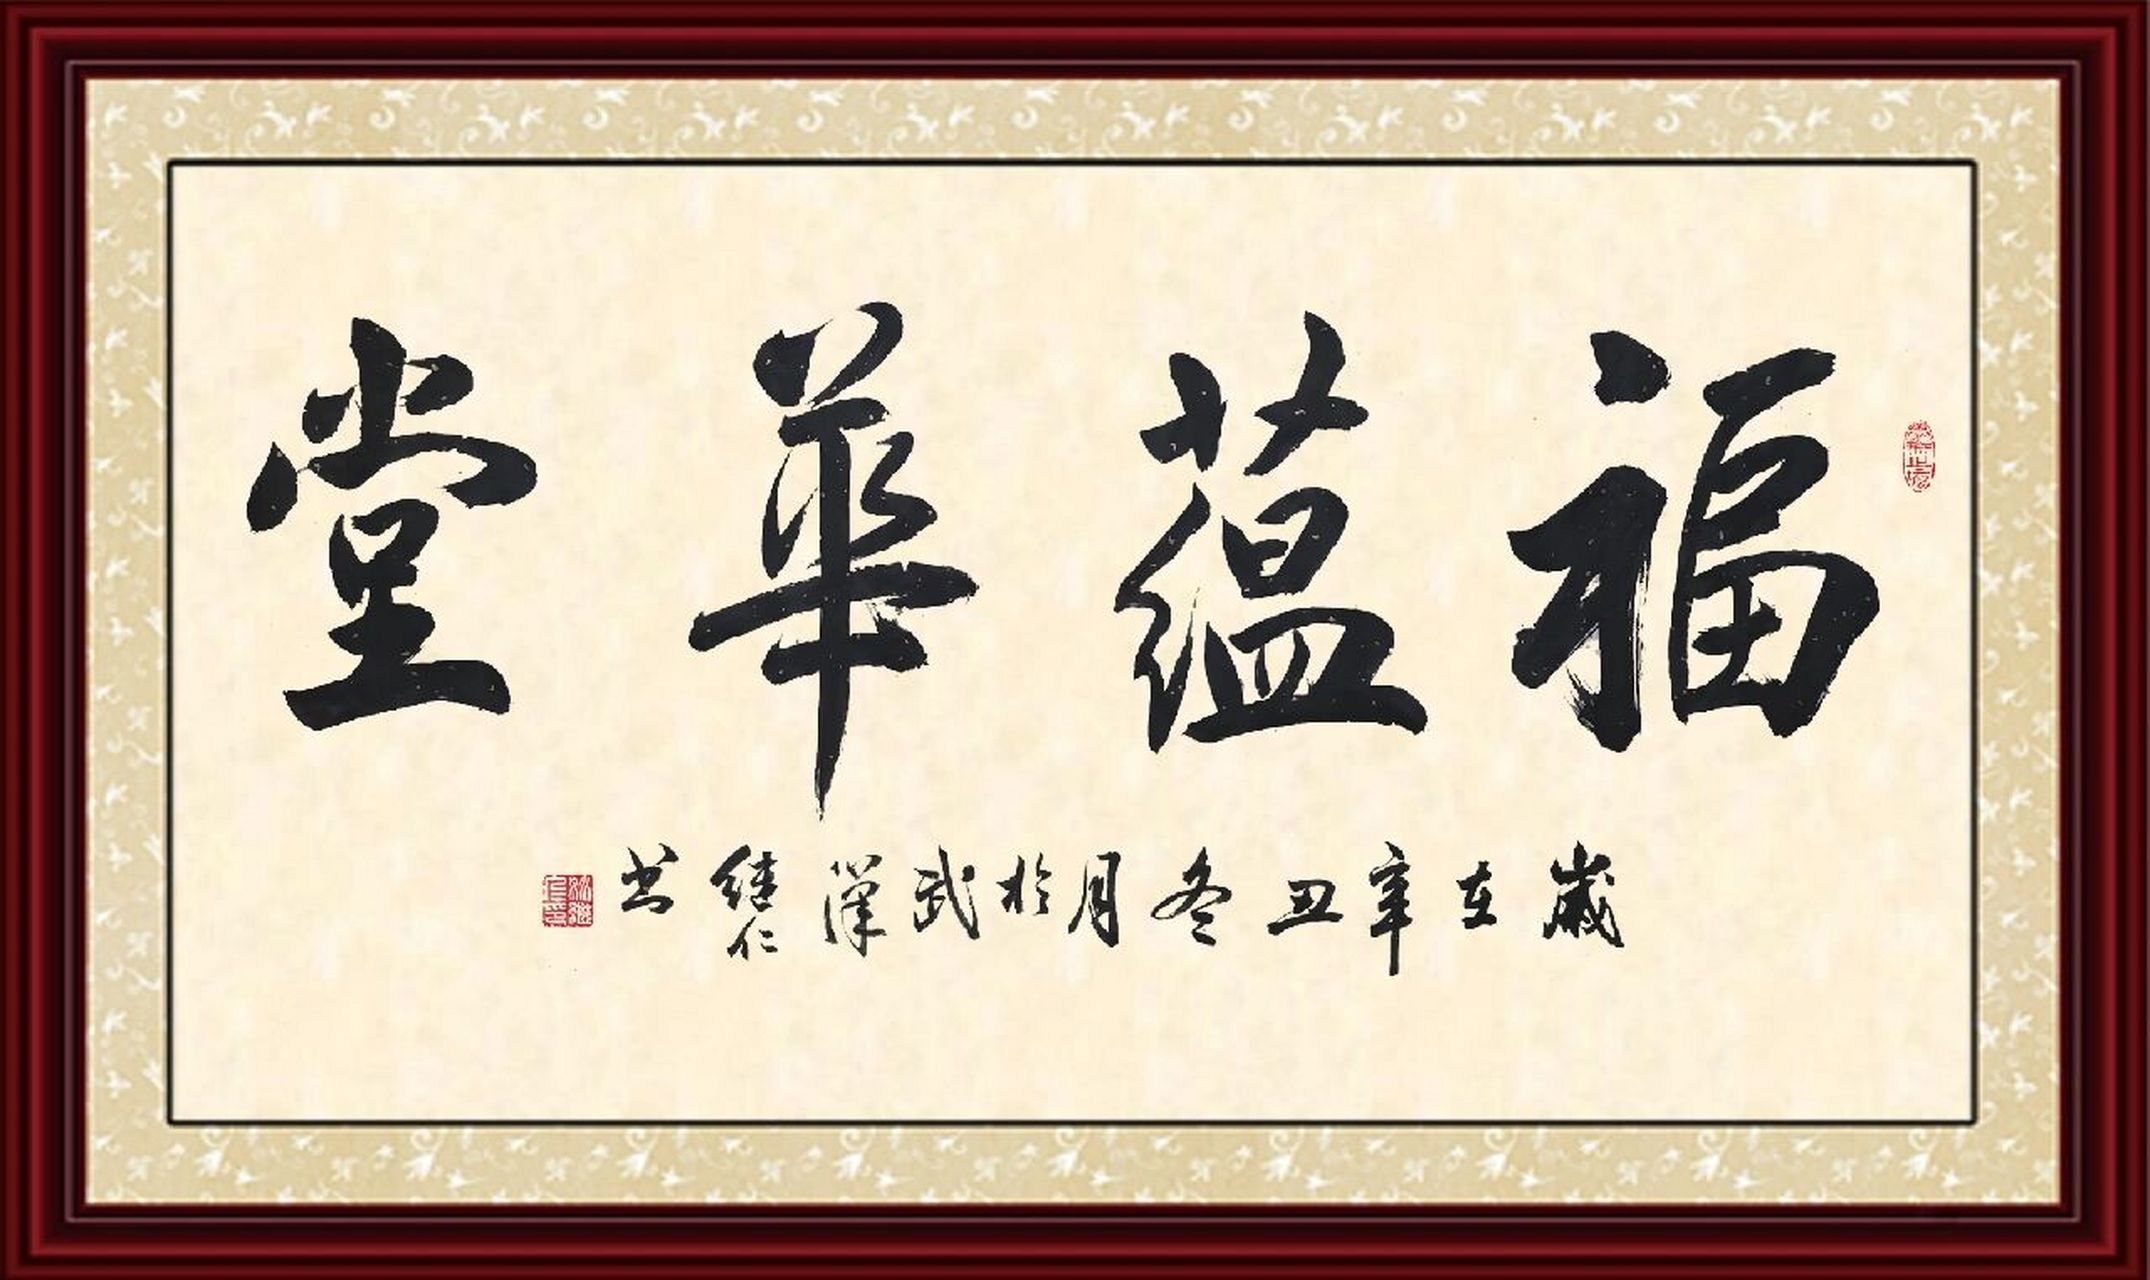 福蕴華堂
歲在辛丑冬月於武漢继仁书